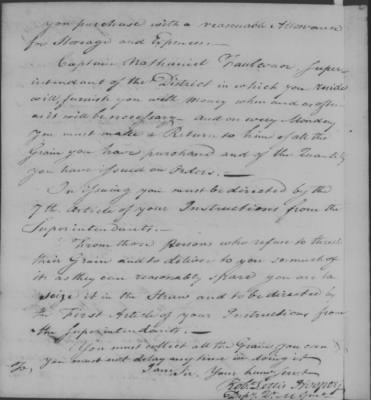 you purchase with a reasonable Allowance
for Storage and Expenses.—
Captain Nathaniel Super-
intendant of the District in which you reside
will furnish you with Money when and as often
as it will be necessary— and on every Monday
you must make a Return to him of all the
Grain you have purchased and of the Quantity
you have issued on Orders.—
In issuing you must be directed by the
7th. Article of your Instructions from the
Superintendants.—
From those persons who refuse to thresh
their Grain and to deliver to you so much of
it as they can reasonably spare you are to
seize it in the Straw and to be directed by
the First Article of your Instructions from
the Superintendants.—
You must collect all the Grain you can
you must not delay any time in doing it
I am Sr. Your hum. Servt.
To,
Robt. Lettis Hooper